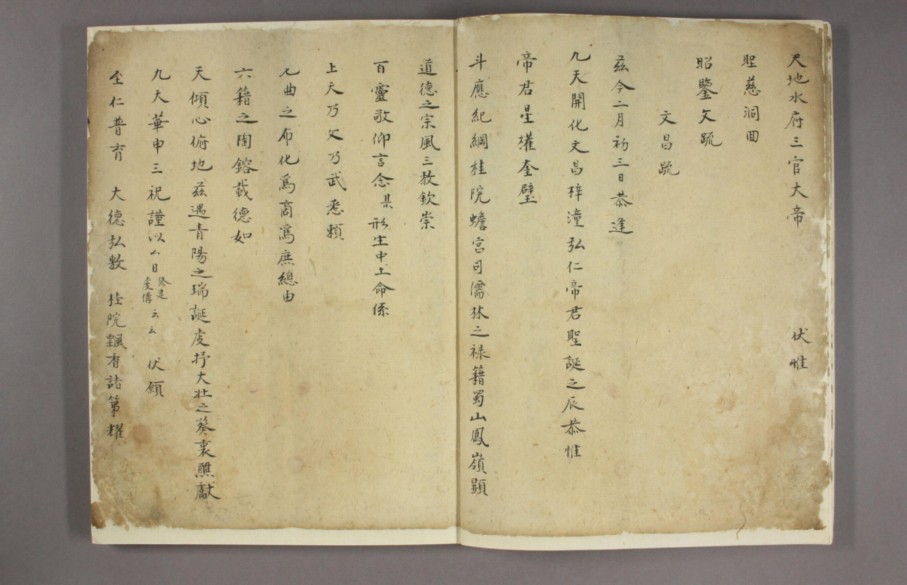 天地水府三官大帝 伏惟
聖慈洞回
昭鑒文疏
文昌疏
茲今二月初三日恭逢
九天開化文昌梓潼弘仁帝君聖誕之辰恭惟
帝君星權奎璧
斗應紀綱桂院蟾宮司儒林之祿籍蜀山鳳嶺顯
道德之宗風三教欽崇
百靈敬仰言念某形生中土命係
上天乃文乃武悉賴
七曲之布化為商為庶總由
六籍之陶鎔載德如
天傾心俯地茲遇青陽之瑞誕虔抒大壯之葵衷爇獻
九天華申三祝謹以厶日 云厶 伏願
至仁普育 大德弘敷 桂院飄香諸第耀